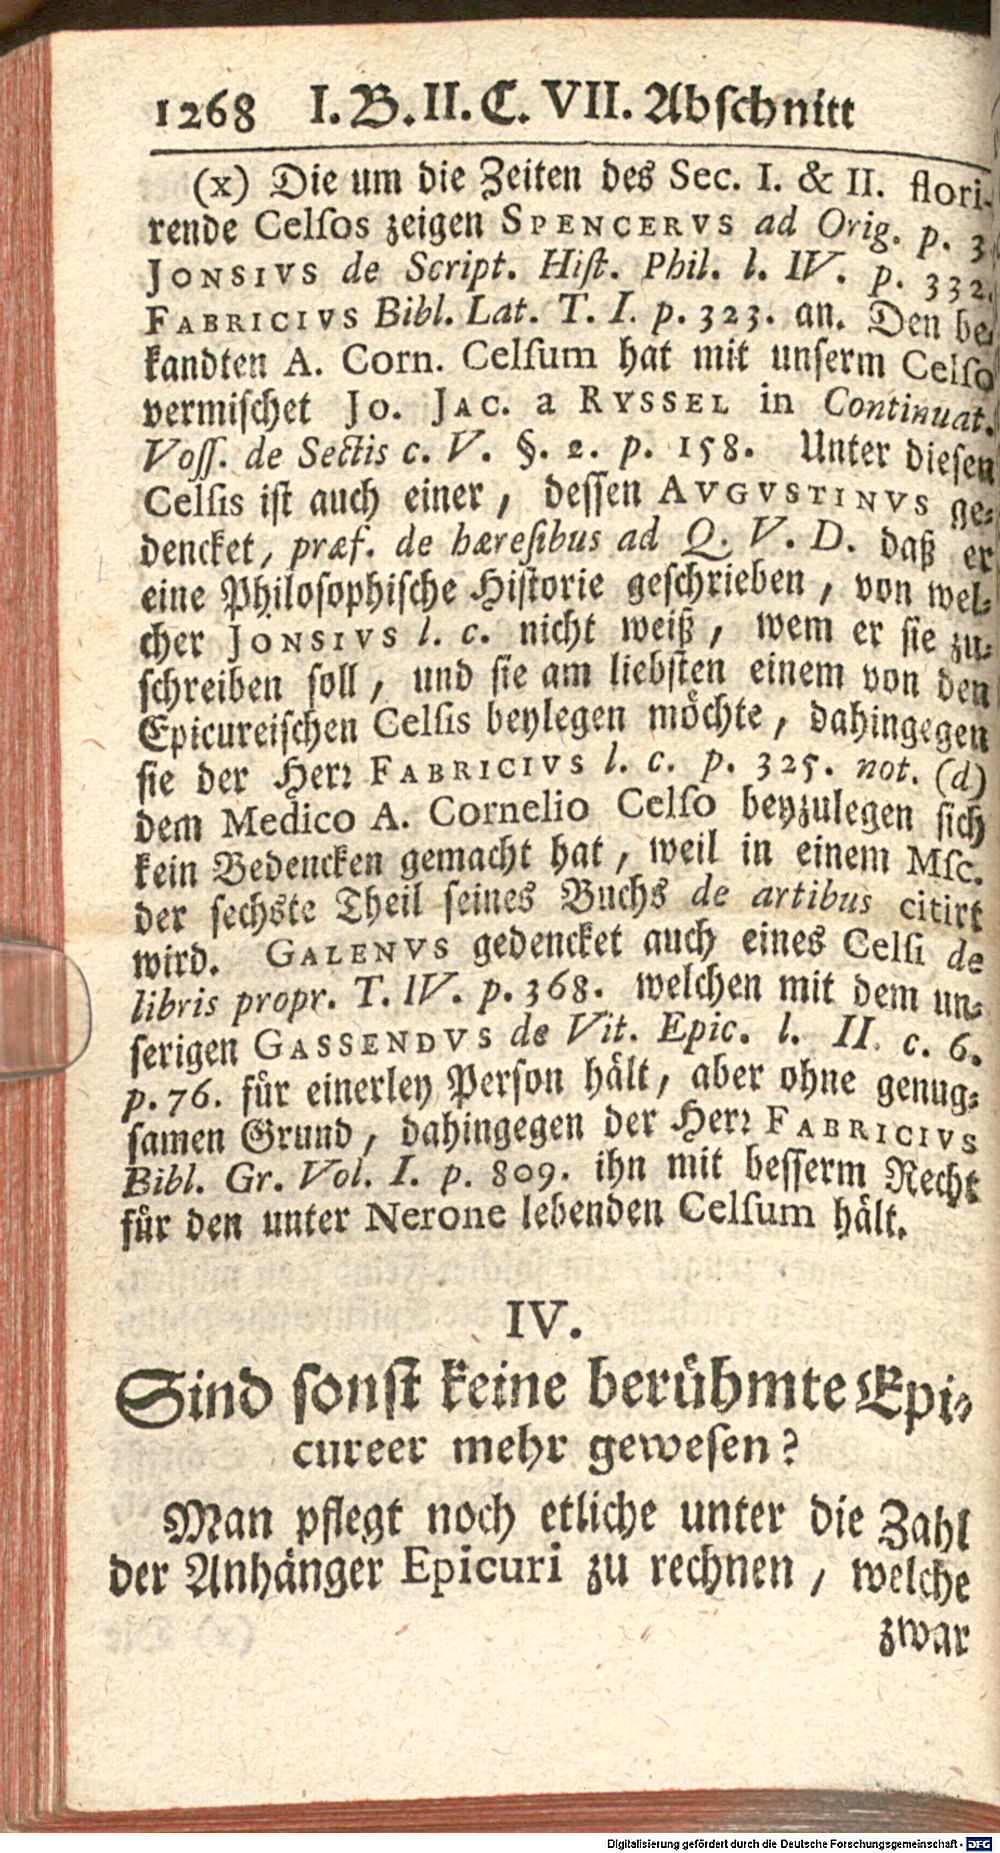 1268 I. B. II. C. VII. Abschnitt
(x) Die um die Zeiten des Sec. I. & II. flori-
rende Celsos zeigen SPENCERVS ad Orig. p. 3
JONSIVS de Script. Hist. Phil. l. IV. p. 332.
FABRICIVS Bibl. Lat. T. I. p. 323. an. Den be-
kandten A. Corn. Celsum hat mit unserm Celso
vermischet JO. JAC. a RYSSEL in Continuat.
Voss. de Sectis c. V. §. 2. p. 158. Unter diesen
Celsis ist auch einer, dessen AVGVSTINVS ge-
dencket, præf. de hæresibus ad Q. V. D. daß er
eine Philosophische Historie geschrieben, von wel-
cher JONSIVS l. c. nicht weiß, wem er sie zu-
schreiben soll, und sie am liebsten einem von den
Epicureischen Celsis beylegen möchte, dahingegen
sie der Herr FABRICIVS l. c. p. 325. not. (d)
dem Medico A. Cornelio Celso beyzulegen sich
kein Bedencken gemacht hat, weil in einem Msc.
der sechste Theil seines Buchs de artibus citirt
wird. GALENVS gedencket auch eines Celsi de
libris propr. T. IV. p. 368. welchen mit dem un-
serigen GASSENDVS de Vit. Epic. l. II. c. 6.
p. 76. für einerley Person hält, aber ohne genug-
samen Grund, dahingegen der Herr FABRICIVS
Bibl. Gr. Vol. I. p. 809. ihn mit besserm Recht
für den unter Nerone lebenden Celsum hält.
IV.
Sind sonst keine berühmte Epi-
cureer mehr gewesen?
Man pflegt noch etliche unter die Zahl
der Anhänger Epicuri zu rechnen, welche
zwar
Digitalisierung gefördert durch die Deutsche Forschungsgemeinschaft - DFG